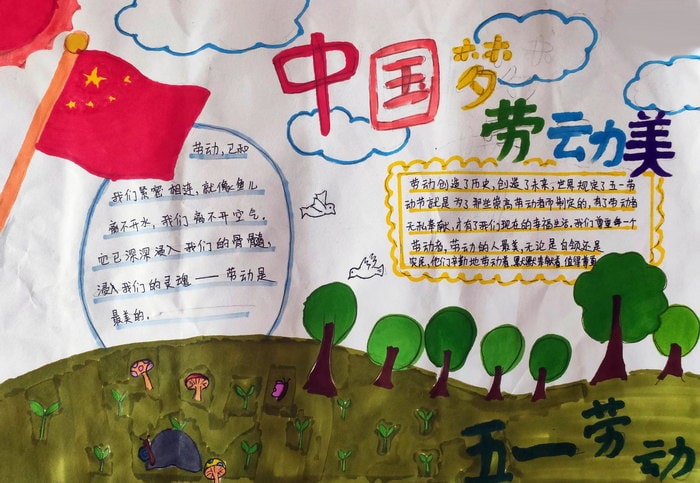 中国梦
劳动云力美
劳动，已和
我们紧密相连，就像鱼儿
离不开水，我们离不开空气。
它已深深浸入我们的骨髓，
浸入我们的灵魂——劳动是
最美的。
劳动创造了历史，创造了未来，世界规定了五一劳
动节就是为了那些崇高劳动者而制定的，有了劳动者
无私奉献，才有了我们现在的幸福生活。我们尊重每一个
劳动者，劳动的人最美，无论是白领还是
农民，他们辛勤地劳动着 默默奉献着 值得尊重
五一劳动